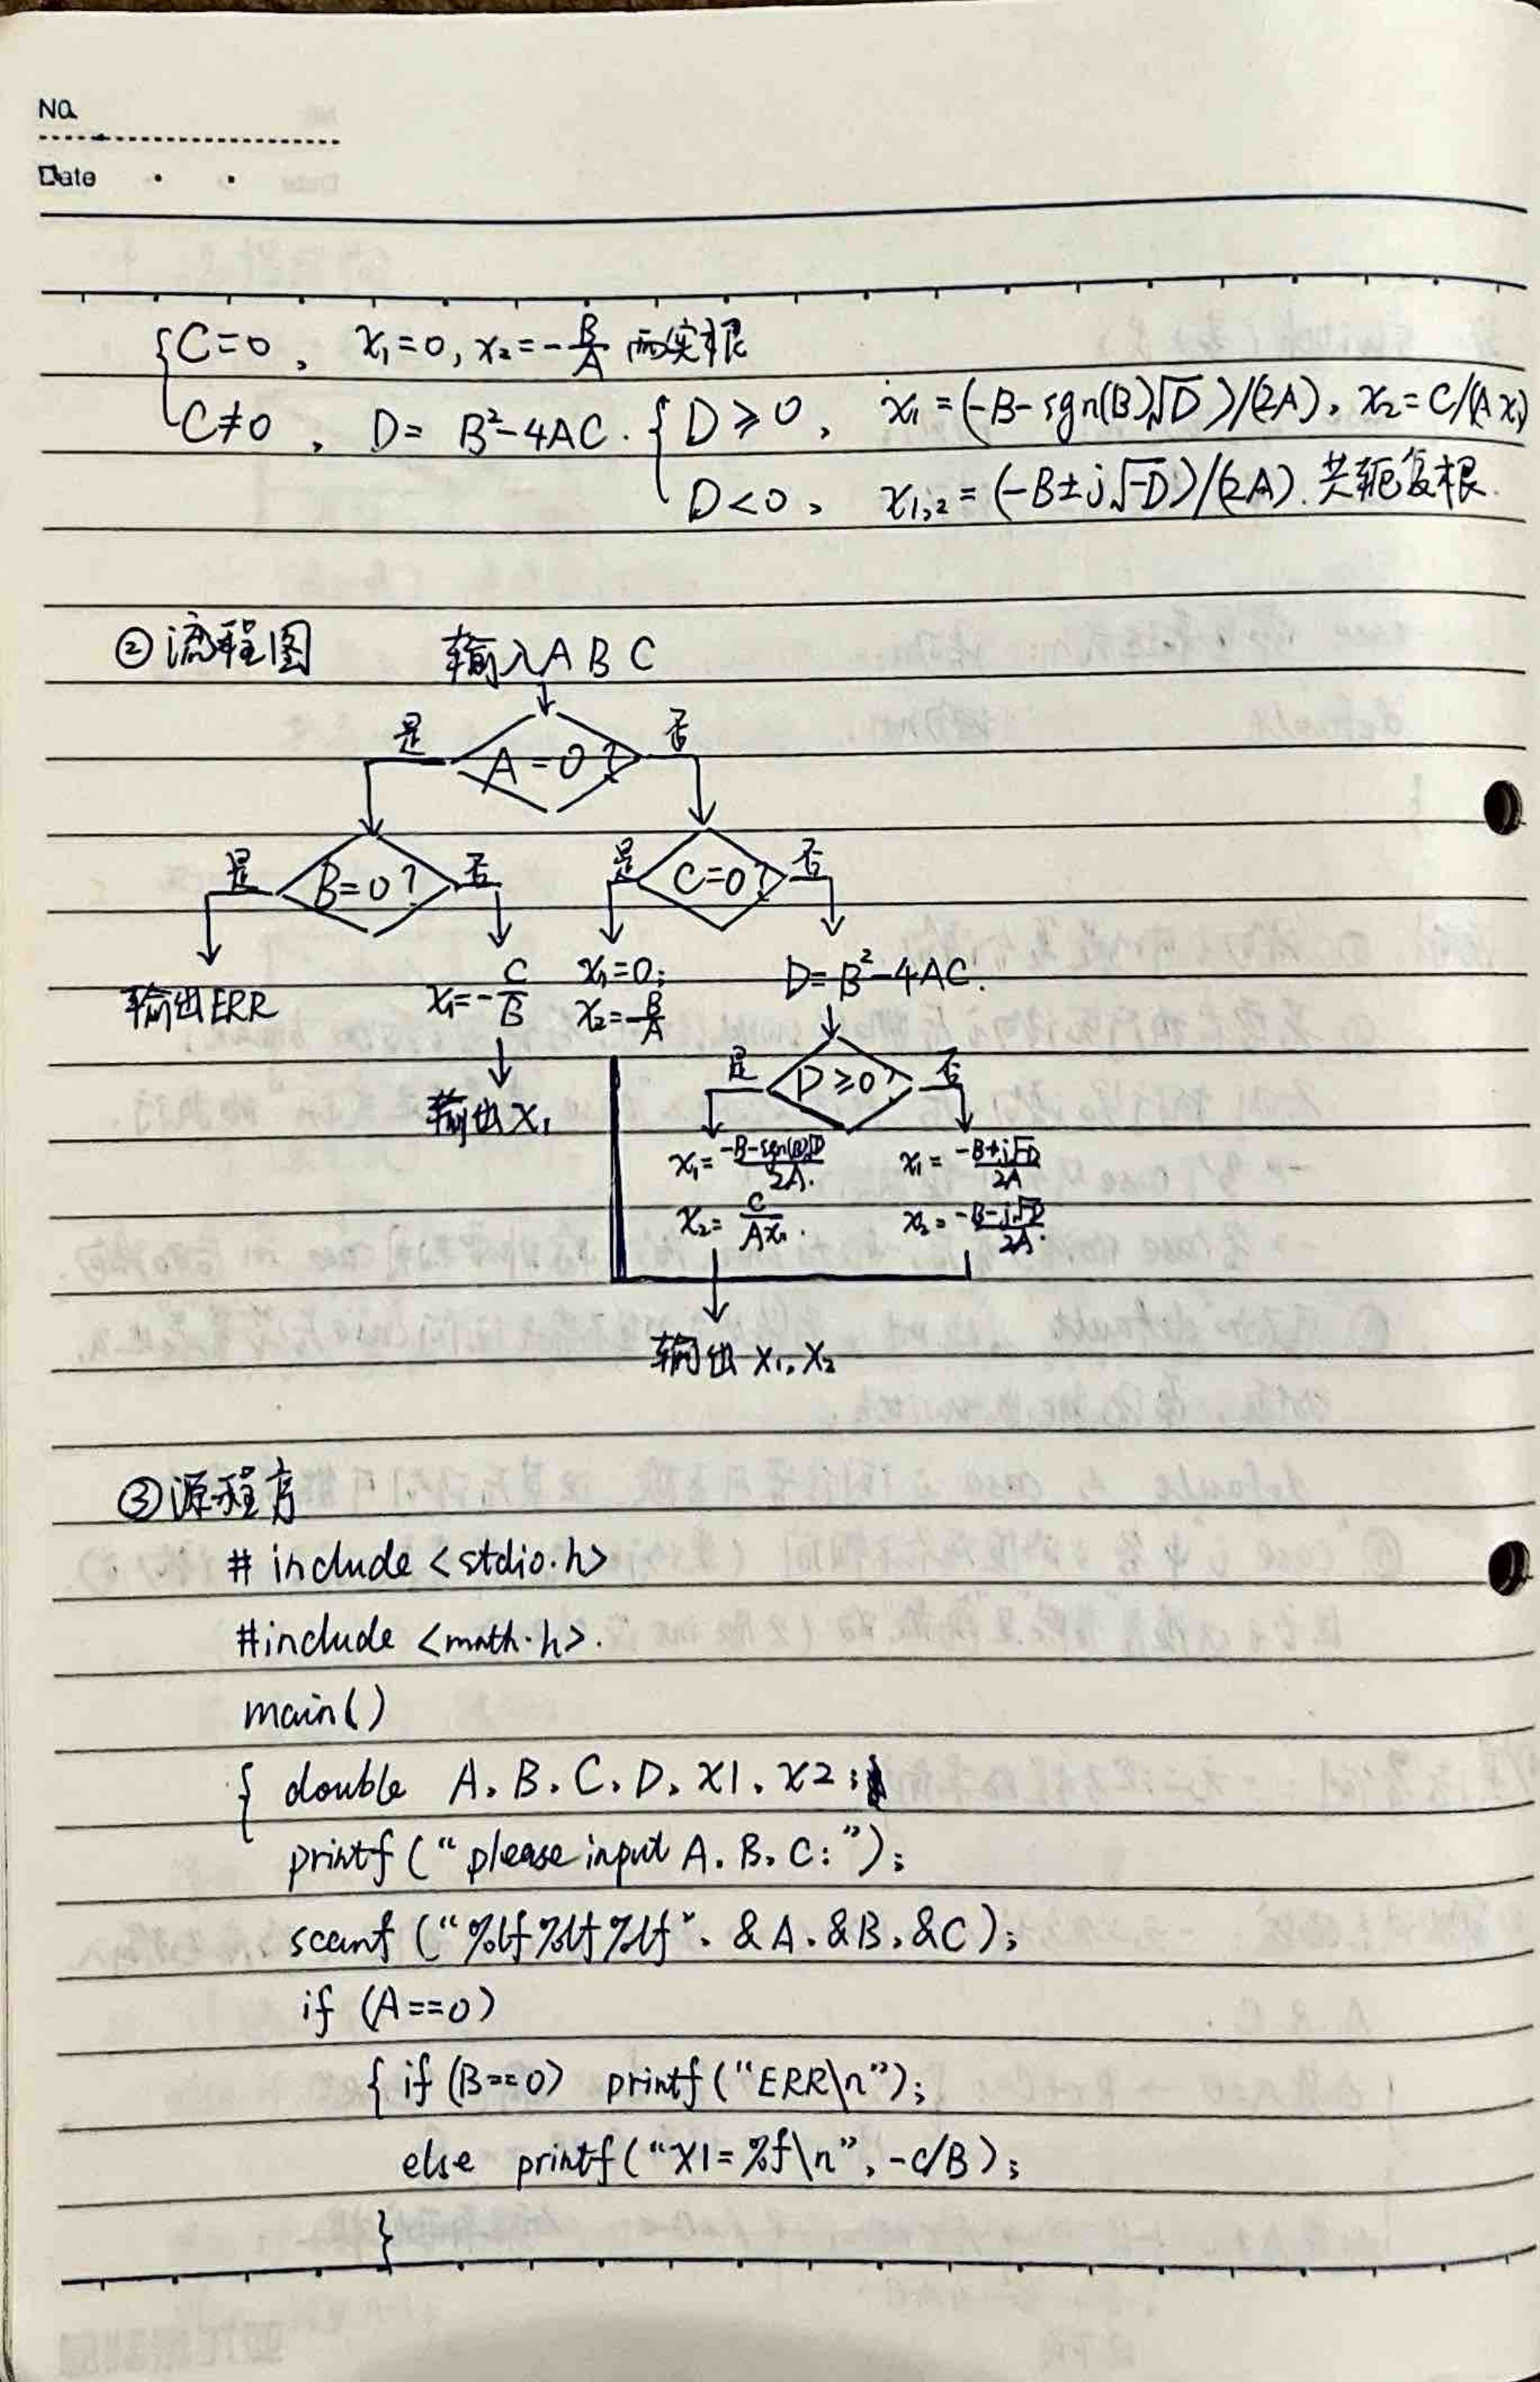 No.
Date
{C=0, x₁=0, x₂=-B/A 两实根
C≠0, D=B²-4AC. {D≥0, x₁=(-B-sgn(B)√D)/(2A), x₂=C/(Ax₁)
D<0, x₁,₂=(-B±j√-D)/(2A). 共轭复根.
②流程图 输入A B C
是 A=0? 否
是 B=0? 否 是 C=0? 否
输出ERR x₁=-C/B x₁=0; x₂=-B/A D=B²-4AC.
输出X₁ 是 D≥0? 否
x₁=-B-sgn(B)√D/2A. x₁=-B+j√-D/2A
x₂=C/Ax₁. x₂=-B-j√-D/2A.
输出 X₁, X₂
③源程序
# include <stdio.h>
#include <math.h>.
main()
{ double A, B, C, D, x1, x2;
printf("please input A, B, C:");
scanf("%lf%lf%lf", &A, &B, &C);
if (A==0)
{ if (B==0) printf("ERR\n");
else printf("X1=%f\n", -C/B);
}